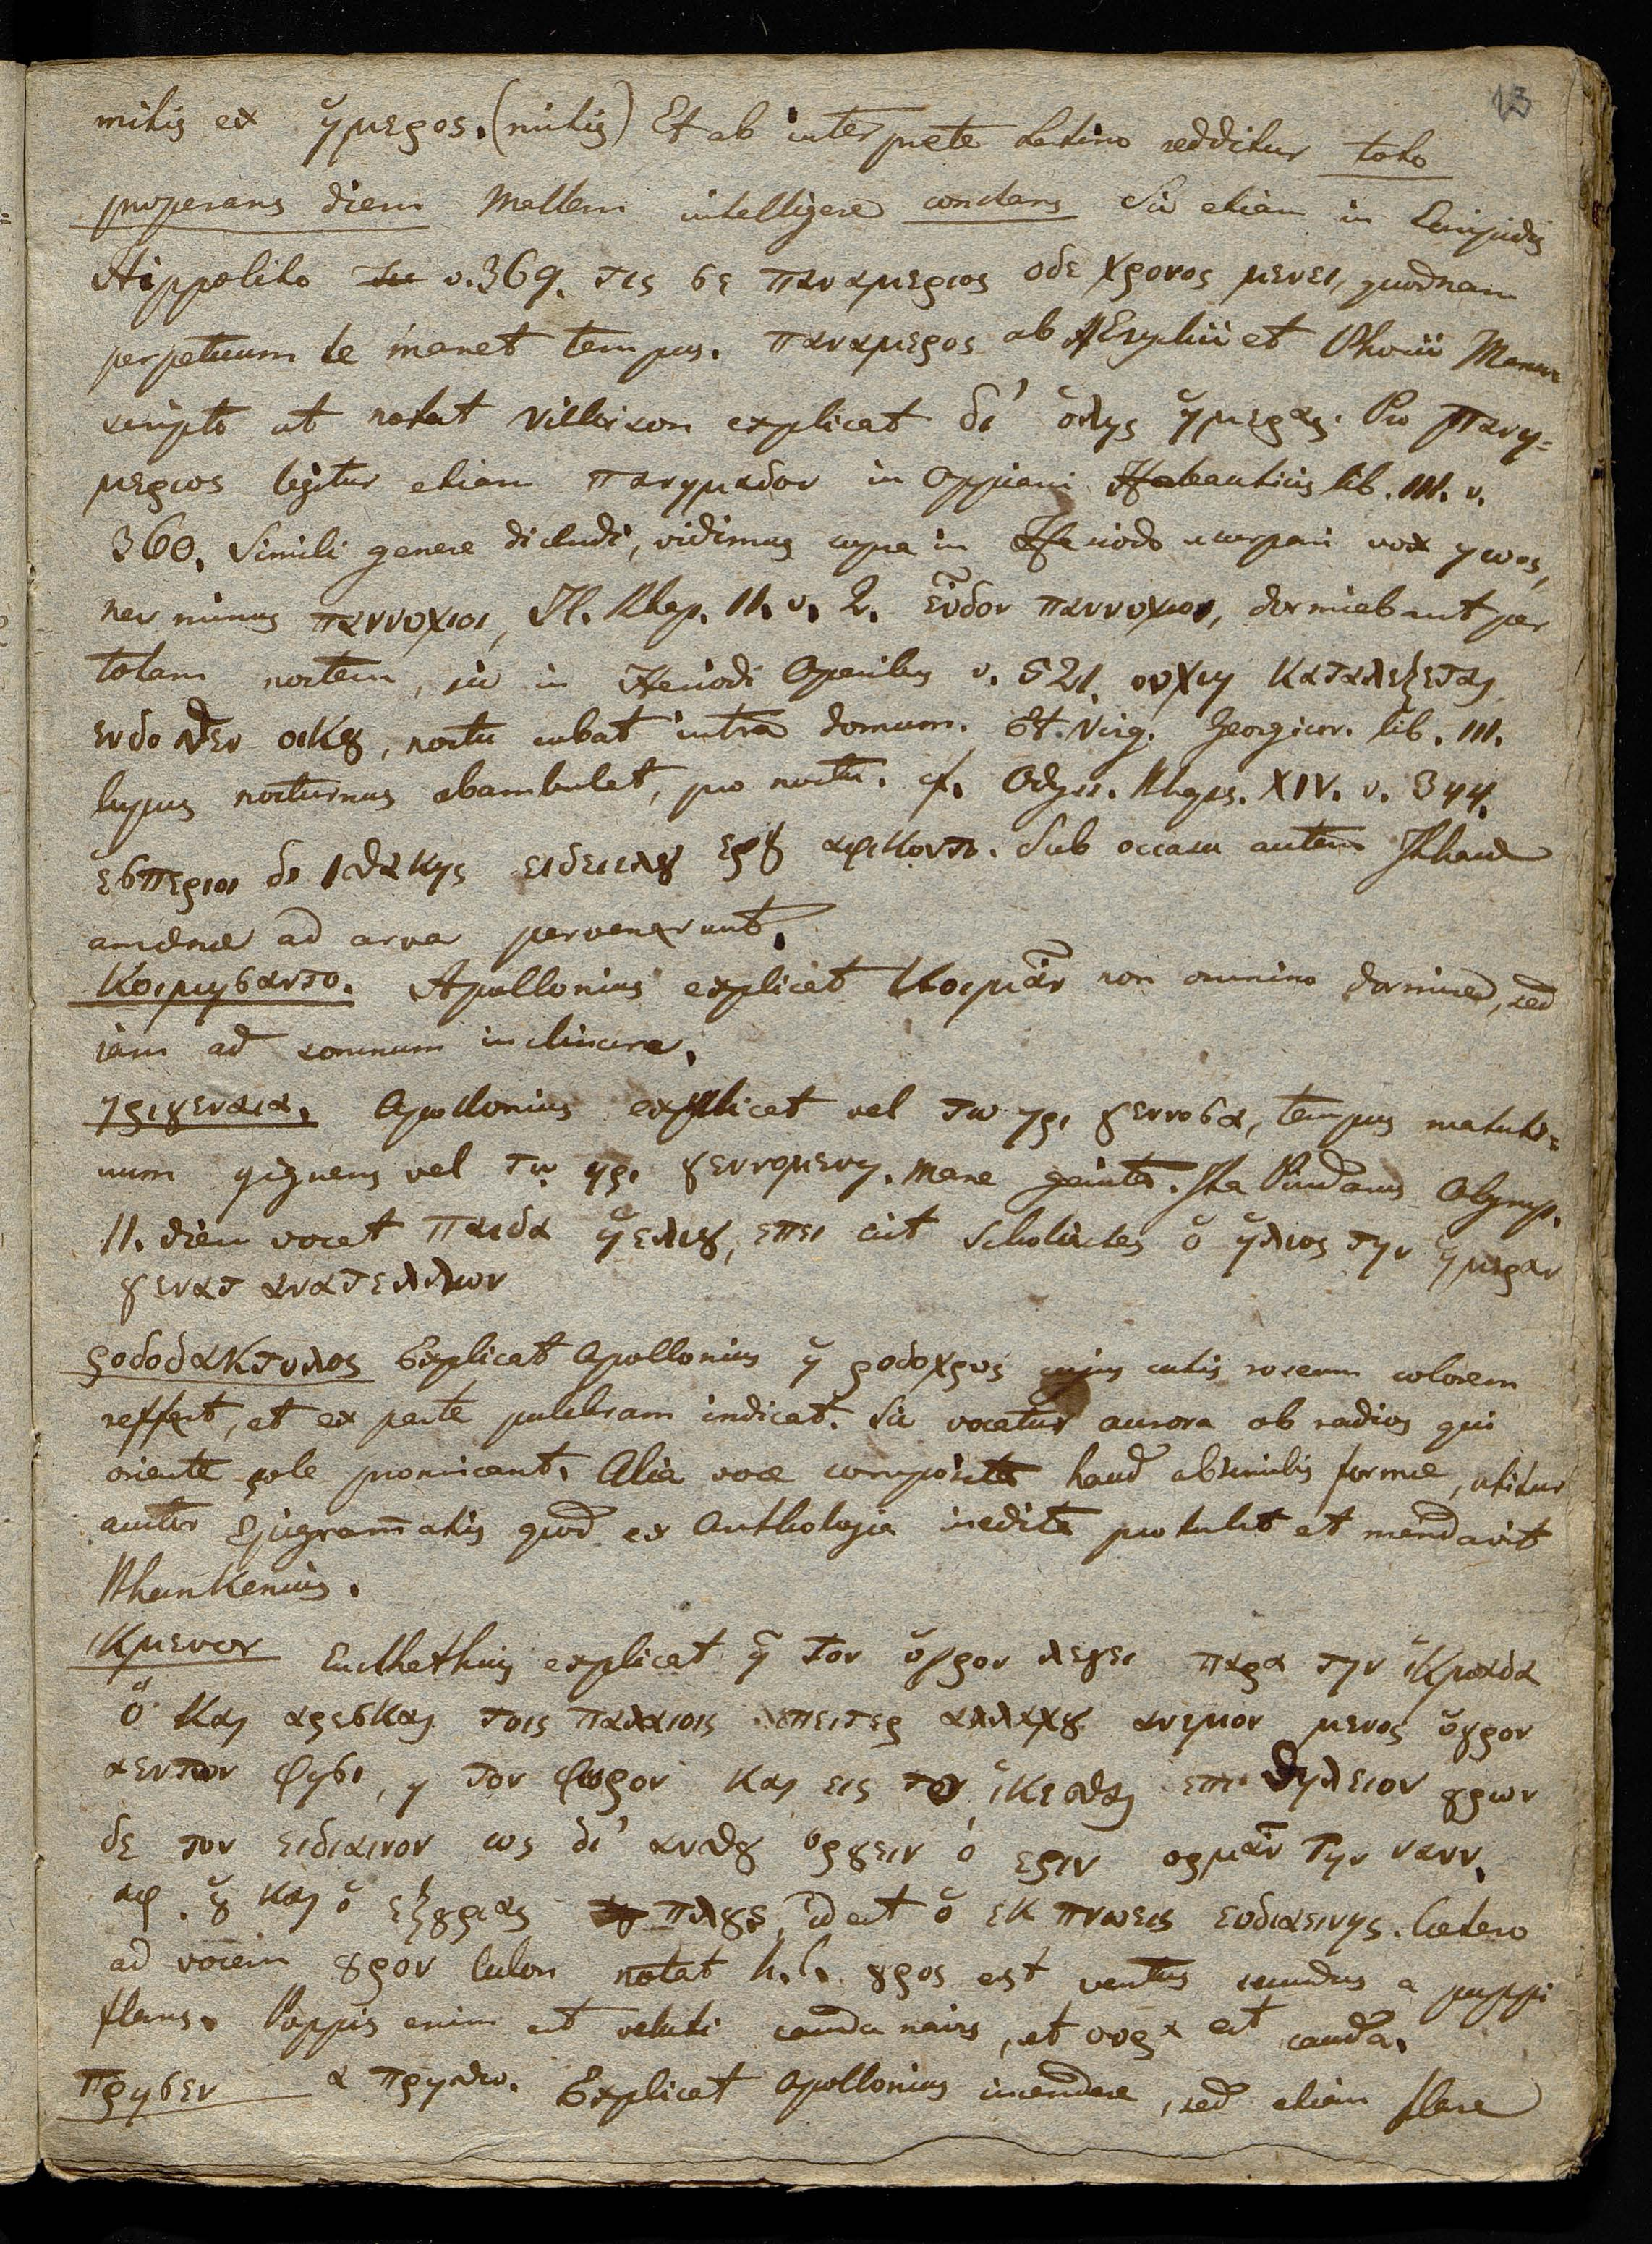 13
mitis ex ἥμερος. (mitis) Et ab interprete Latino redditur toto
properans diem Mallem intelligere constans Sic etiam in Euripidis
Hippolito v. 369. τις σε παναμεριος οδε χρονος μενει, quodnam
perpetuum te manet tempus. παναμερος ab Hesychii et Photii Manu
scripto ut notat Villoison explicat δι' ὅλης ἡμερας. Pro πανη=
μεριος legitur etiam πανημαδον in Oppiani Halieuticis lib. III. v.
360. Simili genere dicendi, vidimus supra in Hesiodo usurpari vox ηωος,
nec minus παννυχιοι, Il. Rhap. II. v. 2. εὗδον παννυχιοι, dormiebant per
totam noctem, sic in Hesiodi Operibus v. 521. νυχιη καταλεξεται
ενδοθεν οικȣ, noctu cubat intra domum. Et Virg. Georgicor. lib. III.
lupus nocturnus obambulat, pro noctu. cf. Odyss. Rhaps. XIV. v. 344.
ἑσπεριοι δι Ιθακης ειδειελȣ εργ αφικοντο. Sub occasu autem Ithacæ
amœnæ ad arva pervenerunt.
Κοιμησαντο. Apollonius explicat Κοιμᾶν non omnino dormire, sed
iam ad somnum inclinare.
ηριγενεια. Apollonius explicat vel τω ηρι γεννοσα, tempus matuti=
num gignens vel τω ηρι γεννομενη. mane genita. Ita Pindarus Olymp.
II. diem vocat παιδα ἡελιȣ, επει ait Scholiastes ὁ ἡλιος την ἡμεραν
γεναται ανατελλων
ροδοδακτυλος Explicat Apollonius ἡ ροδοχρους cujus cutis roseum colorem
reffert, et ex parte pulchram indicat. Sic vocatur aurora ob radios qui
oriente sole promicant. Alia voce composita haud absimilis formæ, utitur
auctor Epigram̄atis quod ex Anthologia inedita protulit et mendavit
Rhunkenius.
ικμενον Eusthathius explicat ἢ τον ὑγρον λεγει παρα την ἱκμαδα
ὃ και αρεσκαι τοις παλαιοις επειπερ αλλαχȣ ανεμον μενος ὑγρον
αεντων φησι, η τον φορον και εις το ἱκεσθαι επιτηδειον ȣρον
δε τον ευδιαινον ως δι' αυτȣ ορȣειν ὁ εστιν ορμᾶν την ναυν.
αφ ȣ και ὁ εξȣριας πλȣς, id est ὁ εκ πνοεις ευδιαεινης. Cætero
ad vocem ȣρον notat h. l. ȣρος est ventus secundus a puppi
flans. Puppis enim est veluti cauda navis, et ουρα est cauda.
πρησεν α πρηθω. Explicat Apollonius incendere, sed etiam flare